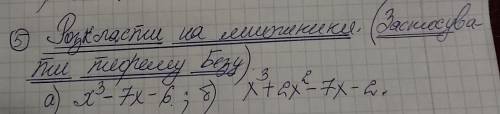 ⑤ Розкласти на множники. (Застосува-
ти теорему Безу).
а) x³-7x-6. ; б) x³+2x²-7x-2.